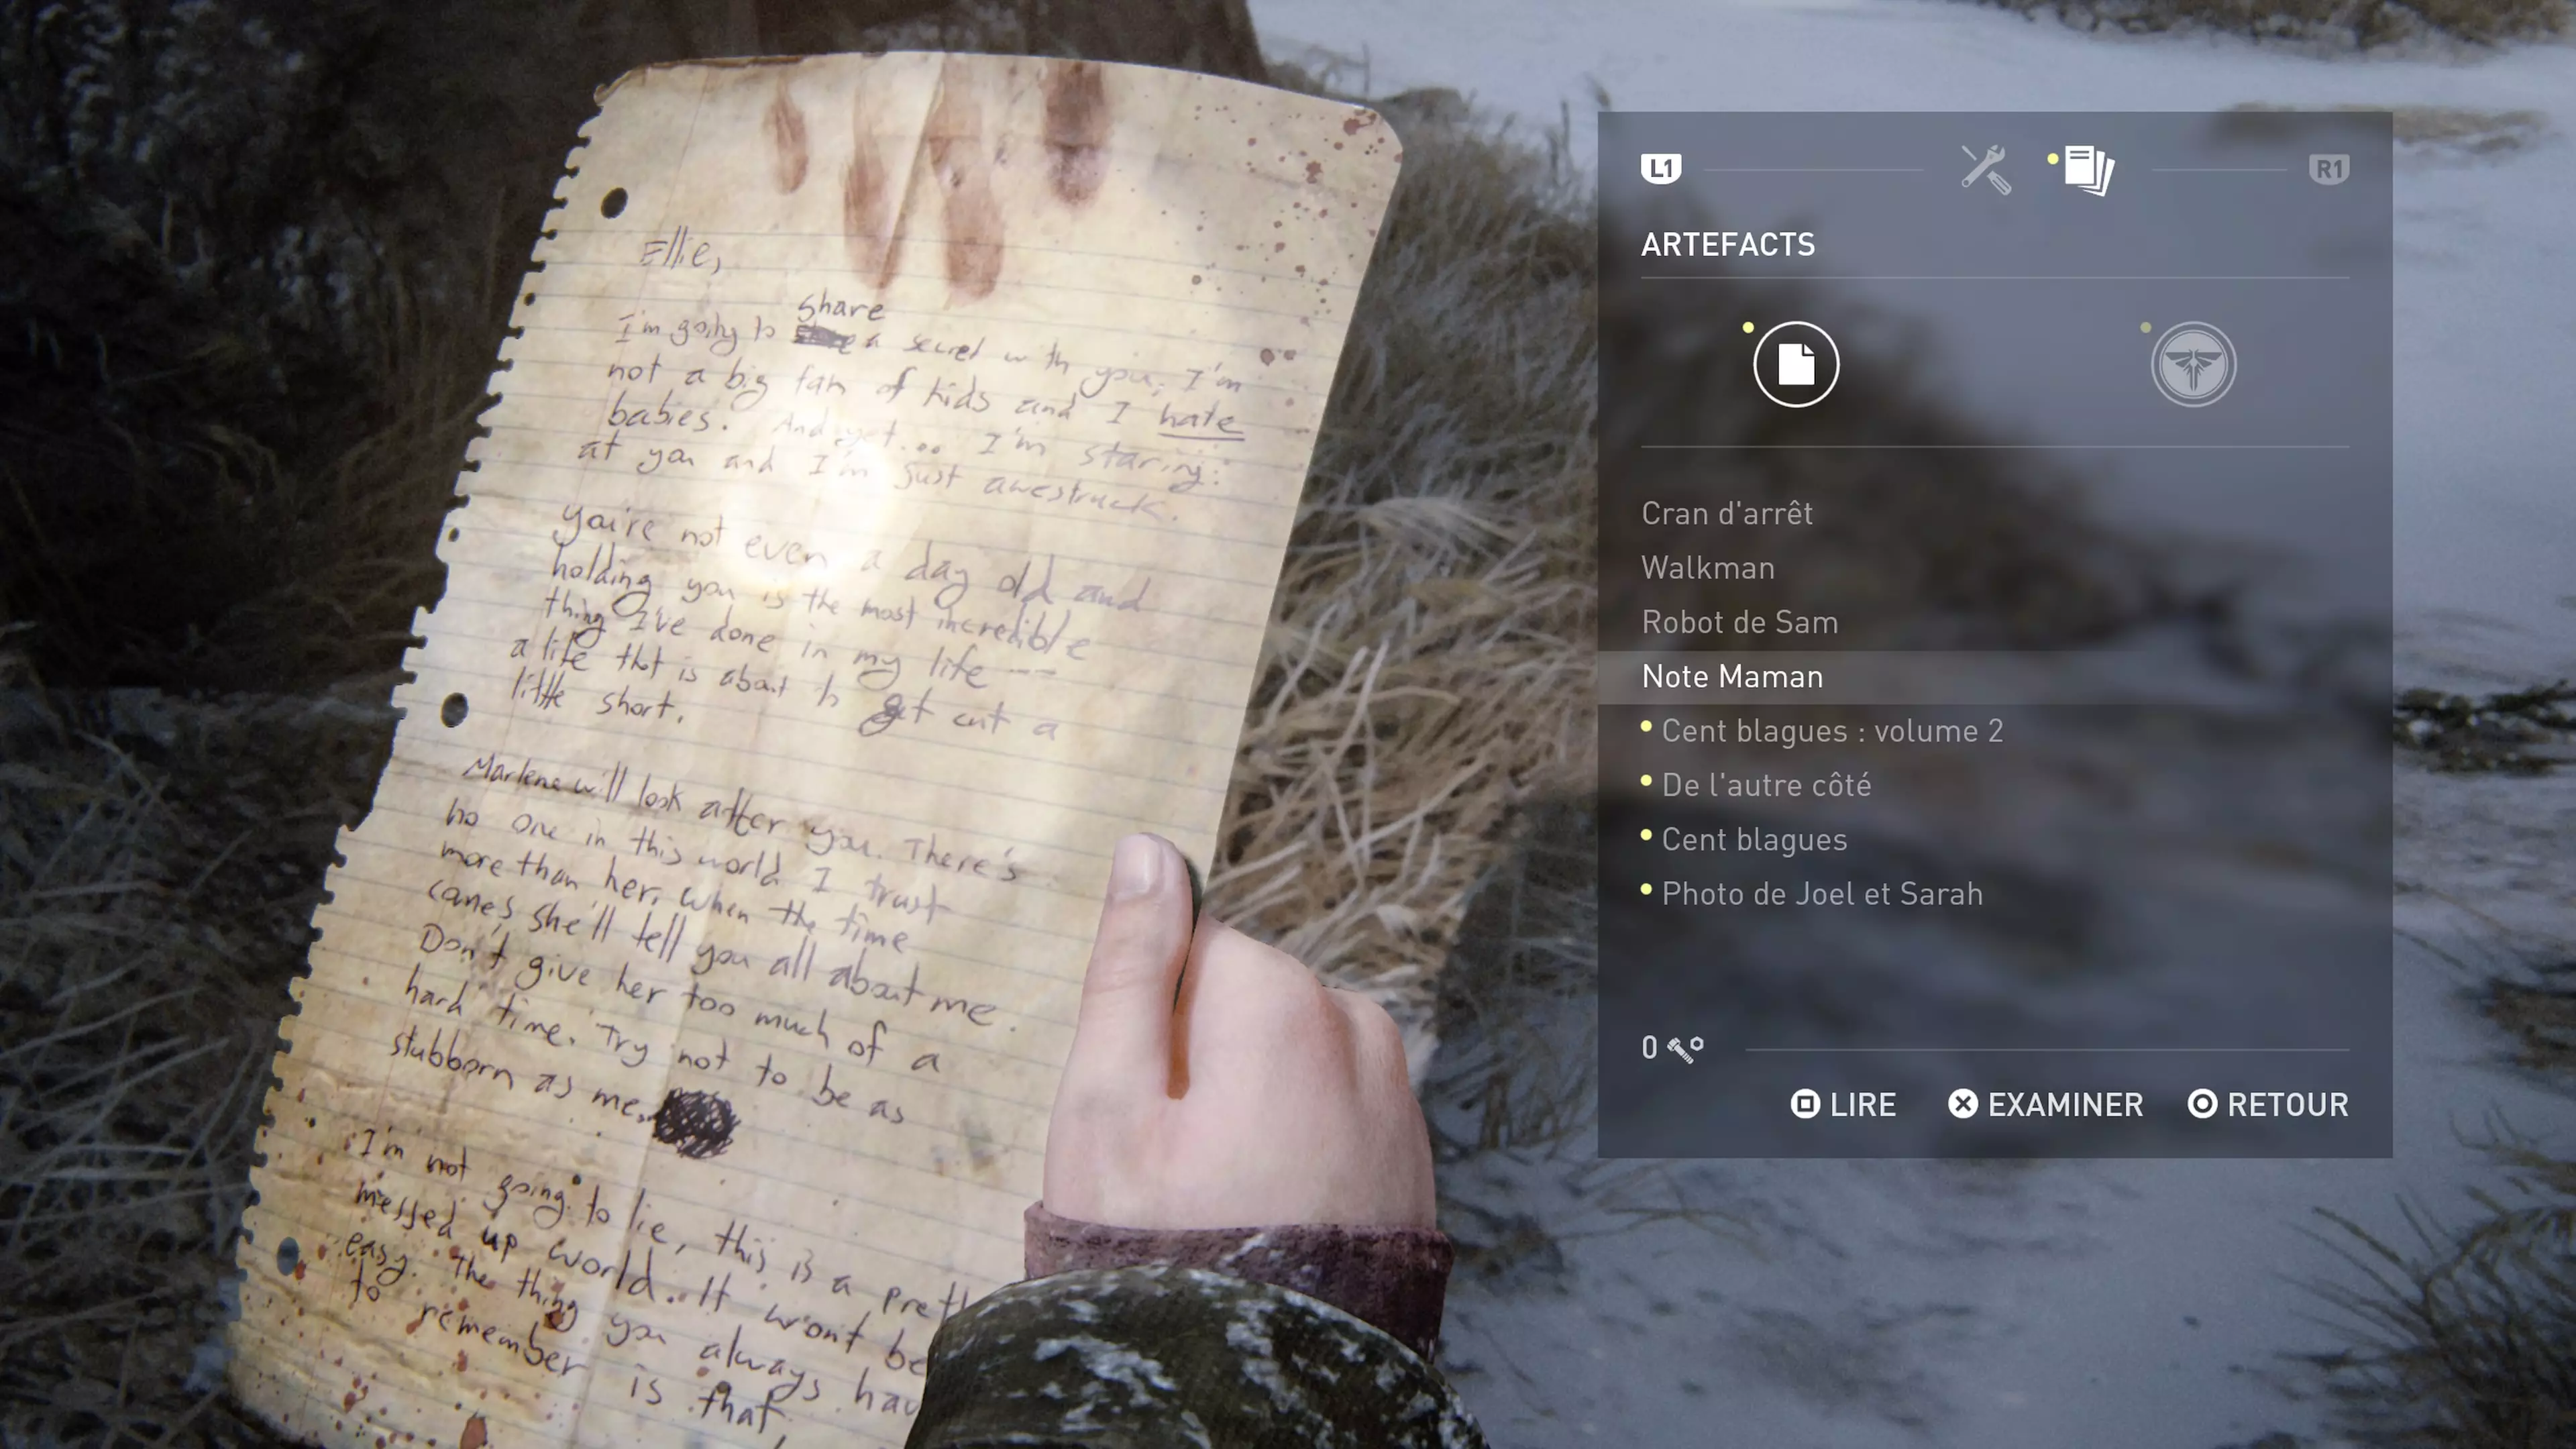 Ellie,
share
I'm going to a secret with you, I'm
not a big fan of kids and I hate
babies. And yet... I'm staring
at you and I'm just awestruck.
You're not even a day old and
holding you is the most incredible
thing I've done in my life --
a life that is about to get cut a
little short.
Marlene will look after you. There's
no one in this world I trust
more than her. When the time
comes she'll tell you all about me.
Don't give her too much of a
hard time. Try not to be as
stubborn as me.
I'm not going to lie, this is a
messed up world. It won't be
easy. The thing you always
to remember is that
L1
R1
ARTEFACTS
Cran d'arrêt
Walkman
Robot de Sam
Note Maman
Cent blagues : volume 2
De l'autre côté
Cent blagues
Photo de Joel et Sarah
0
LIRE EXAMINER RETOUR